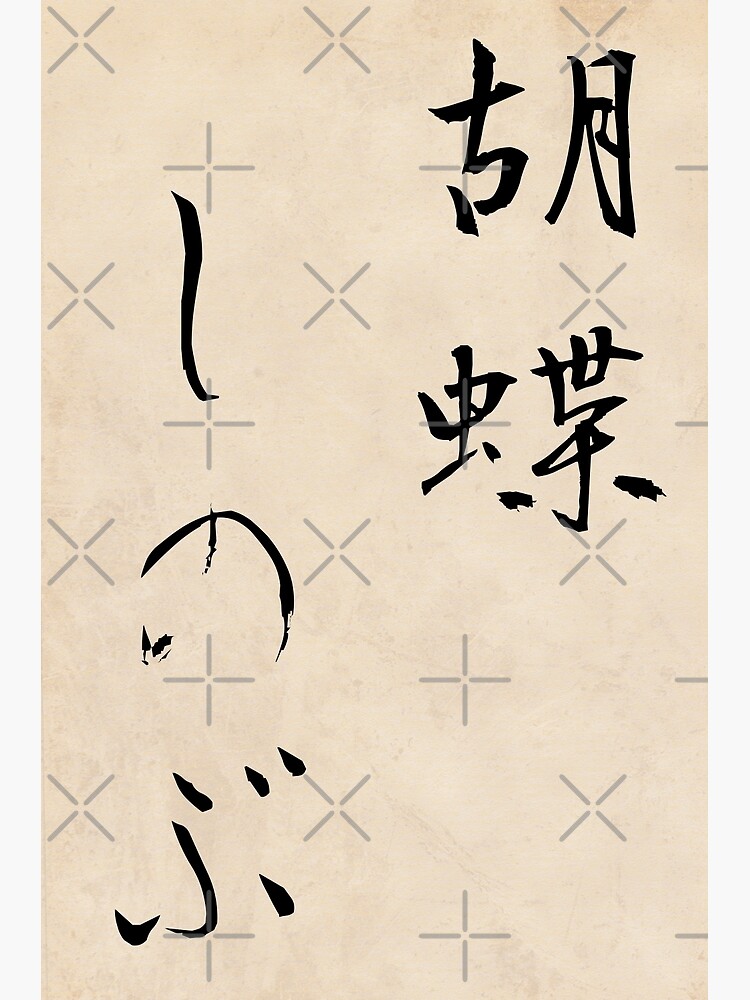 胡蝶
しのぶ